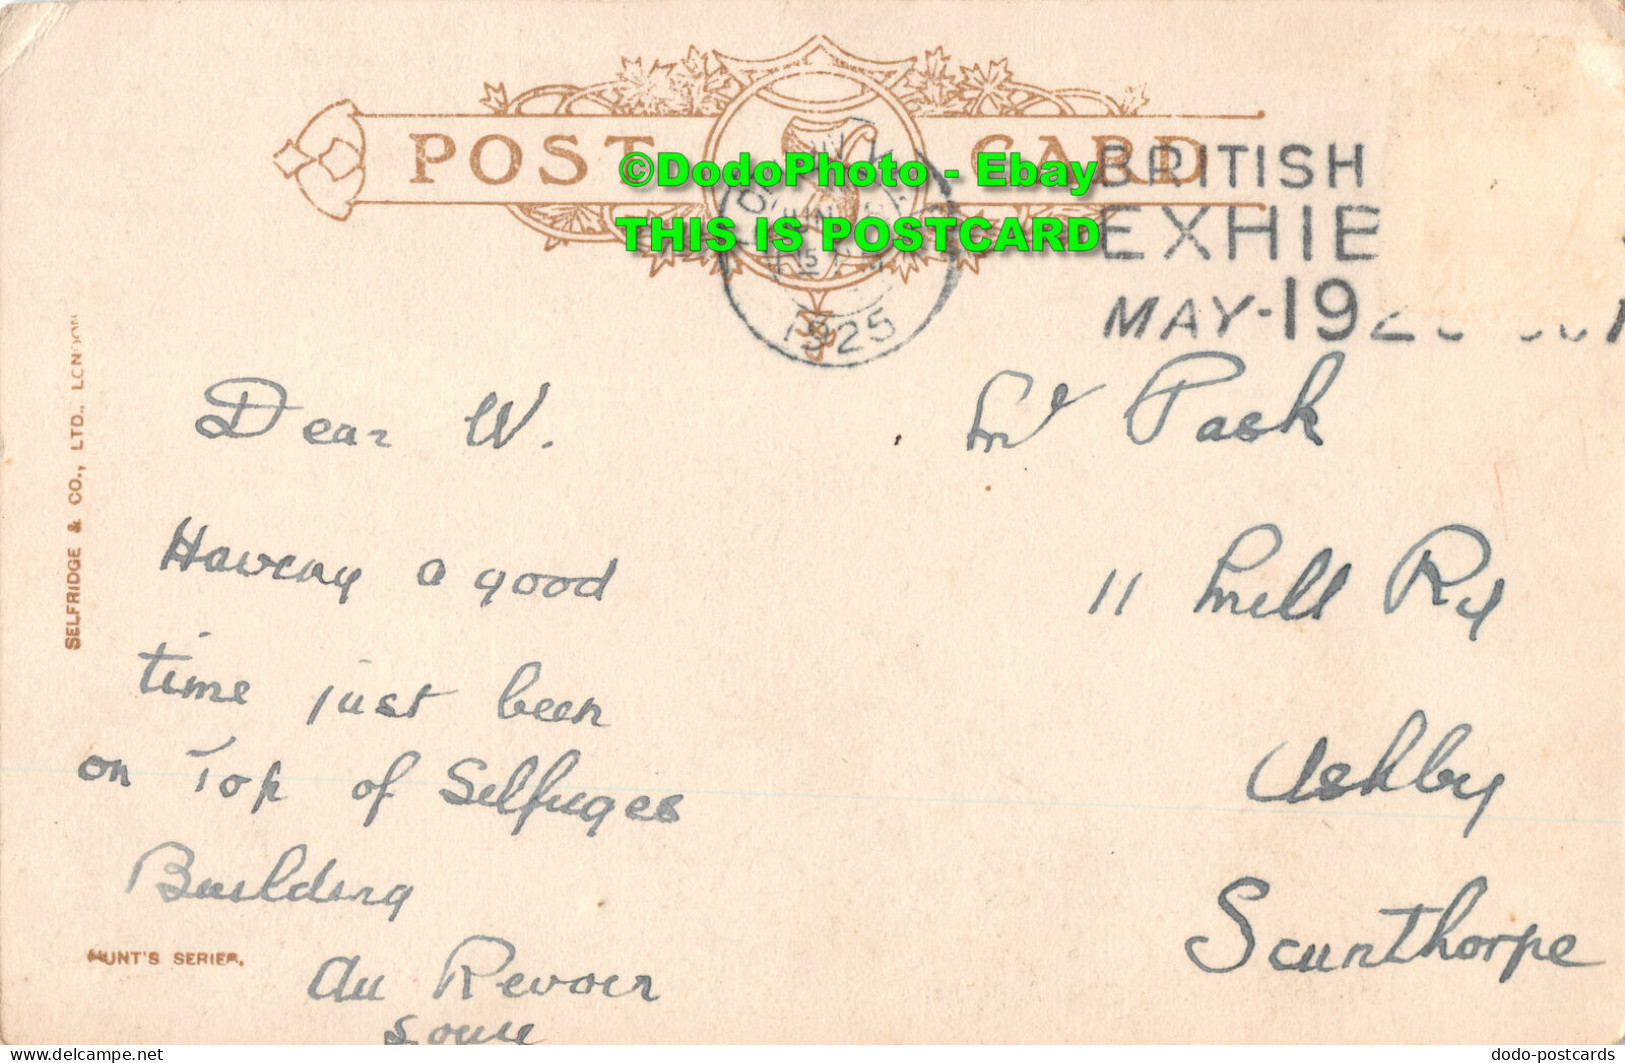 POST CARD
©DodoPhoto - Ebay
THIS IS POSTCARD
BRITISH
EXHIB
MAY-19
1925
SELFRIDGE & CO., LTD., LONDON
Dear W.
Having a good
time just been
on Top of Selfuges
Building
Au Revoir
HUNT'S SERIES.
Mr Pask
11 Mill Rd
Ashby
Scunthorpe
dodo-postcards.delcampe.net
dodo-postcards